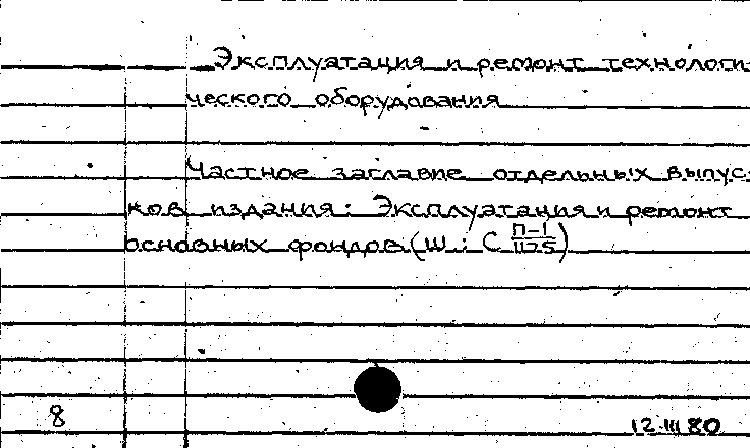 Эксплуатация и ремонт технологи
ческого оборудования
Частное заглавие отдельных выпус
ков издания: Эксплуатация и ремонт
основных фондов (Ш : С П-1/1175)
8
12.III 80